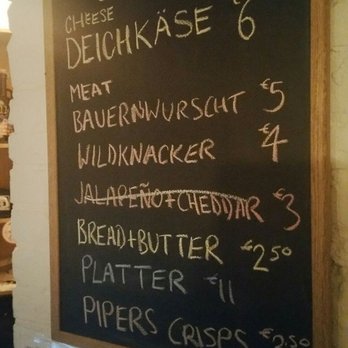 CHEESE
DEICHKÄSE 6
MEAT
BAUERNWURSCHT €5
WILDKNACKER €4
JALAPEÑO+CHEDDAR €3
BREAD+BUTTER €2.50
PLATTER €11
PIPERS CRISPS €2.50